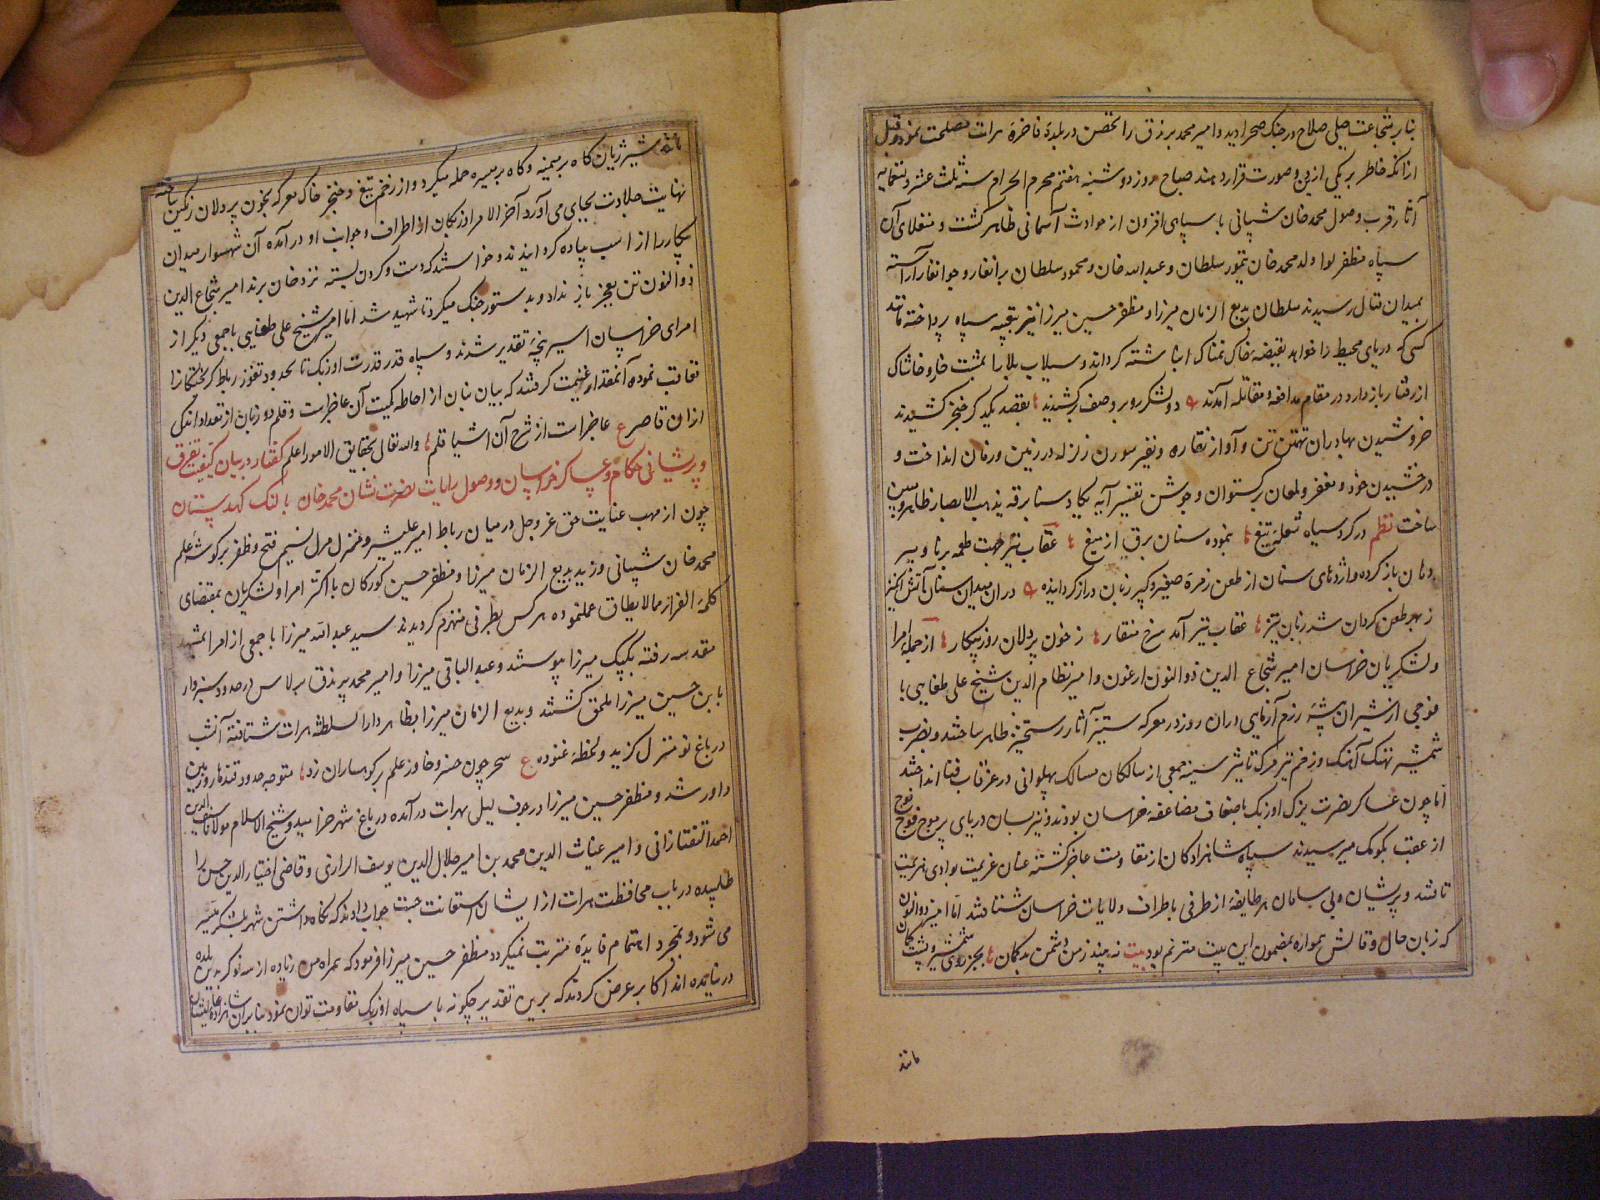 بنابر شجاعت جبلی صلاح در جنک صحرا دید و امیر محمد برندق را تحصن در بلدهٔ فاخرهٔ هرات مصلحت نمود و قبل
ازانکه خاطر بر یکی ازین دو صورت قرار دهند صباح روز دوشنبه هفتم محرم الحرام سنه ثلث عشر و تسعمایه
آثار قرب وصول محمد خان شیبانی با سپاهی افزون از حوادث آسمانی ظاهر کشت و منقلای آن
سپاه مظفر لوا ولد محمد خان تیمور سلطان و عبدالله خان و محمود سلطان برانغار و جوانغار آراسته
بمیدان قتال رسیدند سلطان بدیع الزمان میرزا و مظفر حسین میرزا نیز بتعبیه سپاه پرداخته مانند
کسی که دریای محیط را خواهد بقبضهٔ خاک نمناک انباشته کرداند و سیلاب بلا را بمشت خار و خاشاک
از رفتار باز دارد در مقام مدافعه و مقاتله آمدند دو لشکر روبرو صف برکشیدند بقصد یکدیکر خنجر کشیدند
خروشیدن بهادران تهمتن تن و آواز نقاره و نفیر سورن زلزله در زمین و زمان انداخت و
درخشیدن خود و مغفر و لمعان برکستوان و جوشن تفسیر آیه یکاد سنا برقه یذهب الابصار ظاهر و مبین
ساخت نظم در کرد سیاه شعلهٔ تیغ نموده سنان برق از میغ عقاب تیر جهت طعمه برنا و پیر
دهان باز کرده و اژدهای سنان از طعن زمرهٔ صغیر و کبیر زبان دراز کردانیده در ان میدان سنان آتش انکیز
زبهر طعن کردان شد زبان تیز عقاب تیر آمد سرخ منقار ز خون پردلان روز پیکار از جمله امرا
و لشکریان خراسان امیر شجاع الدین ذوالنون ارغون و امیر نظام الدین شیخ علی طغایی با
فوجی از شیران بیشهٔ رزم آزمایی دران روز در معرکه ستیز آثار رستخیز ظاهر ساختند و بضرب
شمشیر نهنک آهنک و زخم تیر مرک تاثیر سینه جمعی از سالکان مسالک پهلوانی در غرقاب فنا انداختند
اما چون عساکر نصرت یزک اوزبک باضعاف مضاعفه خراسان بودند و نیز بسان دریای پر موج فوج فوج
از عقب بکومک میرسیدند سپاه شاهزادکان از مقاومت عاجز کشته عنان عزیمت بوادی هزیمت
تافتند و پریشان و بی سامان هر طایفه از طرفی باطراف ولایات خراسان شتافتند اما امیر ذوالنون
که زبان حال و قالش همواره بمضمون این بیت مترنم بود بیت نه پیچد ز من دشمن بدکمان بجز روی شمشیر و پشت کمان
مانند
مانند شیر ژیان کاه بر میمنه و کاه بر میسره حمله میکرد و از زخم تیغ و خنجر خاک معرکه بخون پردلان رنکین ساخته
نهایت جلادت بجای می آورد آخر الامر اوزبکان از اطراف و جوانب او در آمده آن شهسوار میدان
پیکار را از اسب پیاده کردانیدند و خواستند که دست و کردن بسته نزد خان برند امیر شجاع الدین
ذوالنون تن بعجز باز نداد و بدستور جنک میکرد تا شهید شد اما امیر شیخ علی طغایی با جمعی دیکر از
امرای خراسان اسیر پنجهٔ تقدیر شدند و سپاه قدر قدرت اوزبک تا بحدود تغوز رباط کریختکانرا
تعاقب نموده آنمقدار غنیمت کرفتند که بیان بنان از احاطه کمیت آن عاجز است و قلم دو زبان از تعداد اندکی
ازان قاصر ع عاجز است از شرح آن اشیا قلم والله تعالی بحقایق الامور اعلم کفتار در بیان کیفیت تفرق
و پریشانی حکام و عساکر خراسان و وصول رایات نصرت نشان محمد خان بالنک کهدستان
چون از مهب عنایت حق عز وجل در میان رباط امیر علیشیر و منزل مرل نسیم فتح و ظفر بر کوشه علم
محمد خان شیبانی وزید بدیع الزمان میرزا و مظفر حسین کورکان با اکثر امرا و لشکریان بمقتضای
کلمهٔ الفرار مما لایطاق عمل نموده هرکس بطرفی منهزم کردیدند سید عبدالله میرزا با جمعی از امرا بمشهد
مقدسه رفته بکپک میرزا پیوستند و عبدالباقی میرزا و امیر محمد برندق برلاس در حدود سبزوار
بابن حسین میرزا ملحق کشتند و بدیع الزمان میرزا بظاهر دارالسلطنه هرات شتافته آنشب
در باغ نو منزل کزید و لحظه غنوده ع سحر چون خسرو خاور علم بر کوهساران زد متوجه حدود قندهار و زمین
داور شد و مظفر حسین میرزا در جوف لیل بهرات درآمده در باغ شهر خرامید و شیخ الاسلام مولانا سیف الدین
احمد التفتازانی و امیر غیاث الدین محمد بن امیر جلال الدین یوسف الرازی و قاضی اختیار الدین حسن را
طلبیده در باب محافظت هرات از ایشان استعانت جست جواب دادند که نکاه داشتن شهر بلشکر میسر
می شود و بمجرد اهتمام فایده مترتب نمیکردد مظفر حسین میرزا فرمود که همراه من زیاده از سه نوکر باین بلده
در نیامده اند اکابر عرض کردند که برین تقدیر چکونه با سپاه اوزبک مقاومت توان نمود بنابران شاهزاده عالیشان